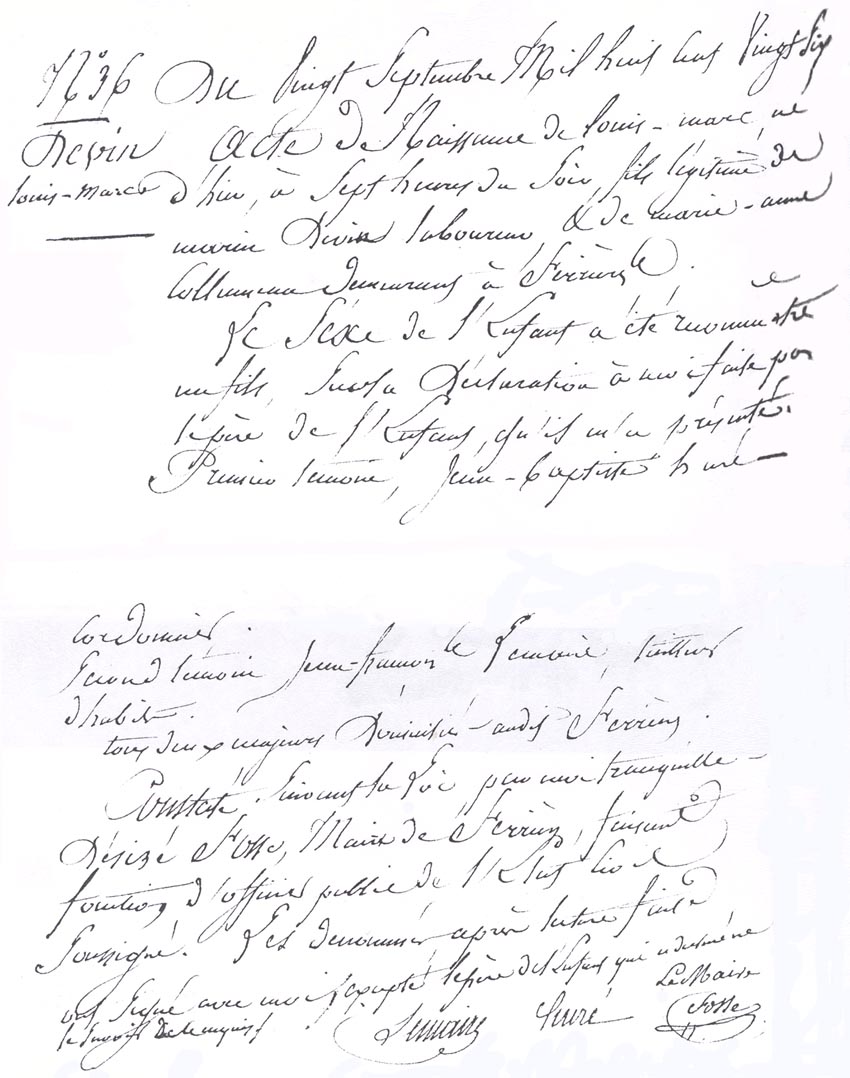 N° 36 Du Vingt Septembre Mil huit cent Vingt Six
Devin Acte de Naissance de louis-marc, né
louis-Marc d'hier, à Sept heures du Soir, fils légitime de
marin Devin laboureur & de marie-anne
demeurans à Ferrières.
Le Sexe de l'Enfant a été reconnu être
un fils, Sur la Déclaration à moi faite par
le père de l'Enfant, qu'il m'a présenté.
Premier témoin, Jean-Baptiste huré
cordonnier.
Second témoin Jean-françois Lemaire, tailleur
d'habits.
tous deux majeurs Domiciliés audit Ferrières.
Constaté Suivant la Loi, par moi tranquille-
Désiré Fosse, Maire de Ferrières, faisant
fonctions d'officier public de l'Etat Civil
Soussigné. Les dénommés après lecture faite
ont Signé avec moi, excepté le père de l'Enfant qui a déclaré ne
le savoir de ce requis.
Lemaire huré Le Maire
Fosse